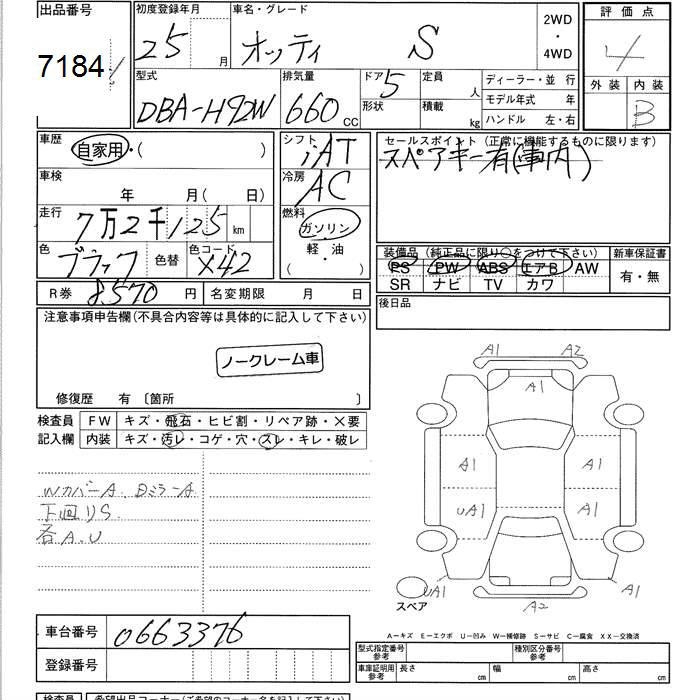 出品番号 初度登録年月 車名・グレード 2WD 評価点
7184 25 月 オッティ S ・ 4WD 4
型式 排気量 ドア 5 定員 人 ディーラー・並 行 外装 内装
DBA-H92W 660 CC 形状 積載 kg モデル年式 年 B
ハンドル 左・右
車歴 自家用・( ) シフト iAT セールスポイント (正常に機能するものに限ります)
スペアキー有(車内)
車検 年 月( 日) 冷房 AC
走行 7万2千125 km 燃料 ガソリン
軽・油
( )
色 ブラック 色替 色コード X42
装備品 (純正品に限り○をつけて下さい) 新車保証書
PS PW ABS エアB AW 有・無
SR ナビ TV カワ
R券 8,570 円 名変期限 月 日 後日品
注意事項申告欄(不具合内容等は具体的に記入して下さい)
ノークレーム車
修復歴 有 〔箇所 〕
検査員 FW キズ・飛石・ヒビ割・リペア跡・×要
記入欄 内装 キズ・汚レ・コゲ・穴・スレ・キレ・破レ
WカバーA. DミラーA
下回りS.
各A.U
A1 A2
A1
A1 A1
UA1 A1
UA1 A1
A2
スペア
車台番号 0663376
登録番号
A―キズ E―エクボ U―凹み W―補修跡 S―サビ C―腐食 XX―交換済
型式指定番号 参考 種別区分番号 参考
車庫証明用 参考 長さ cm 幅 cm 高さ cm
検査員 希望出品コーナー(ご希望のコーナー名を記入して下さい)